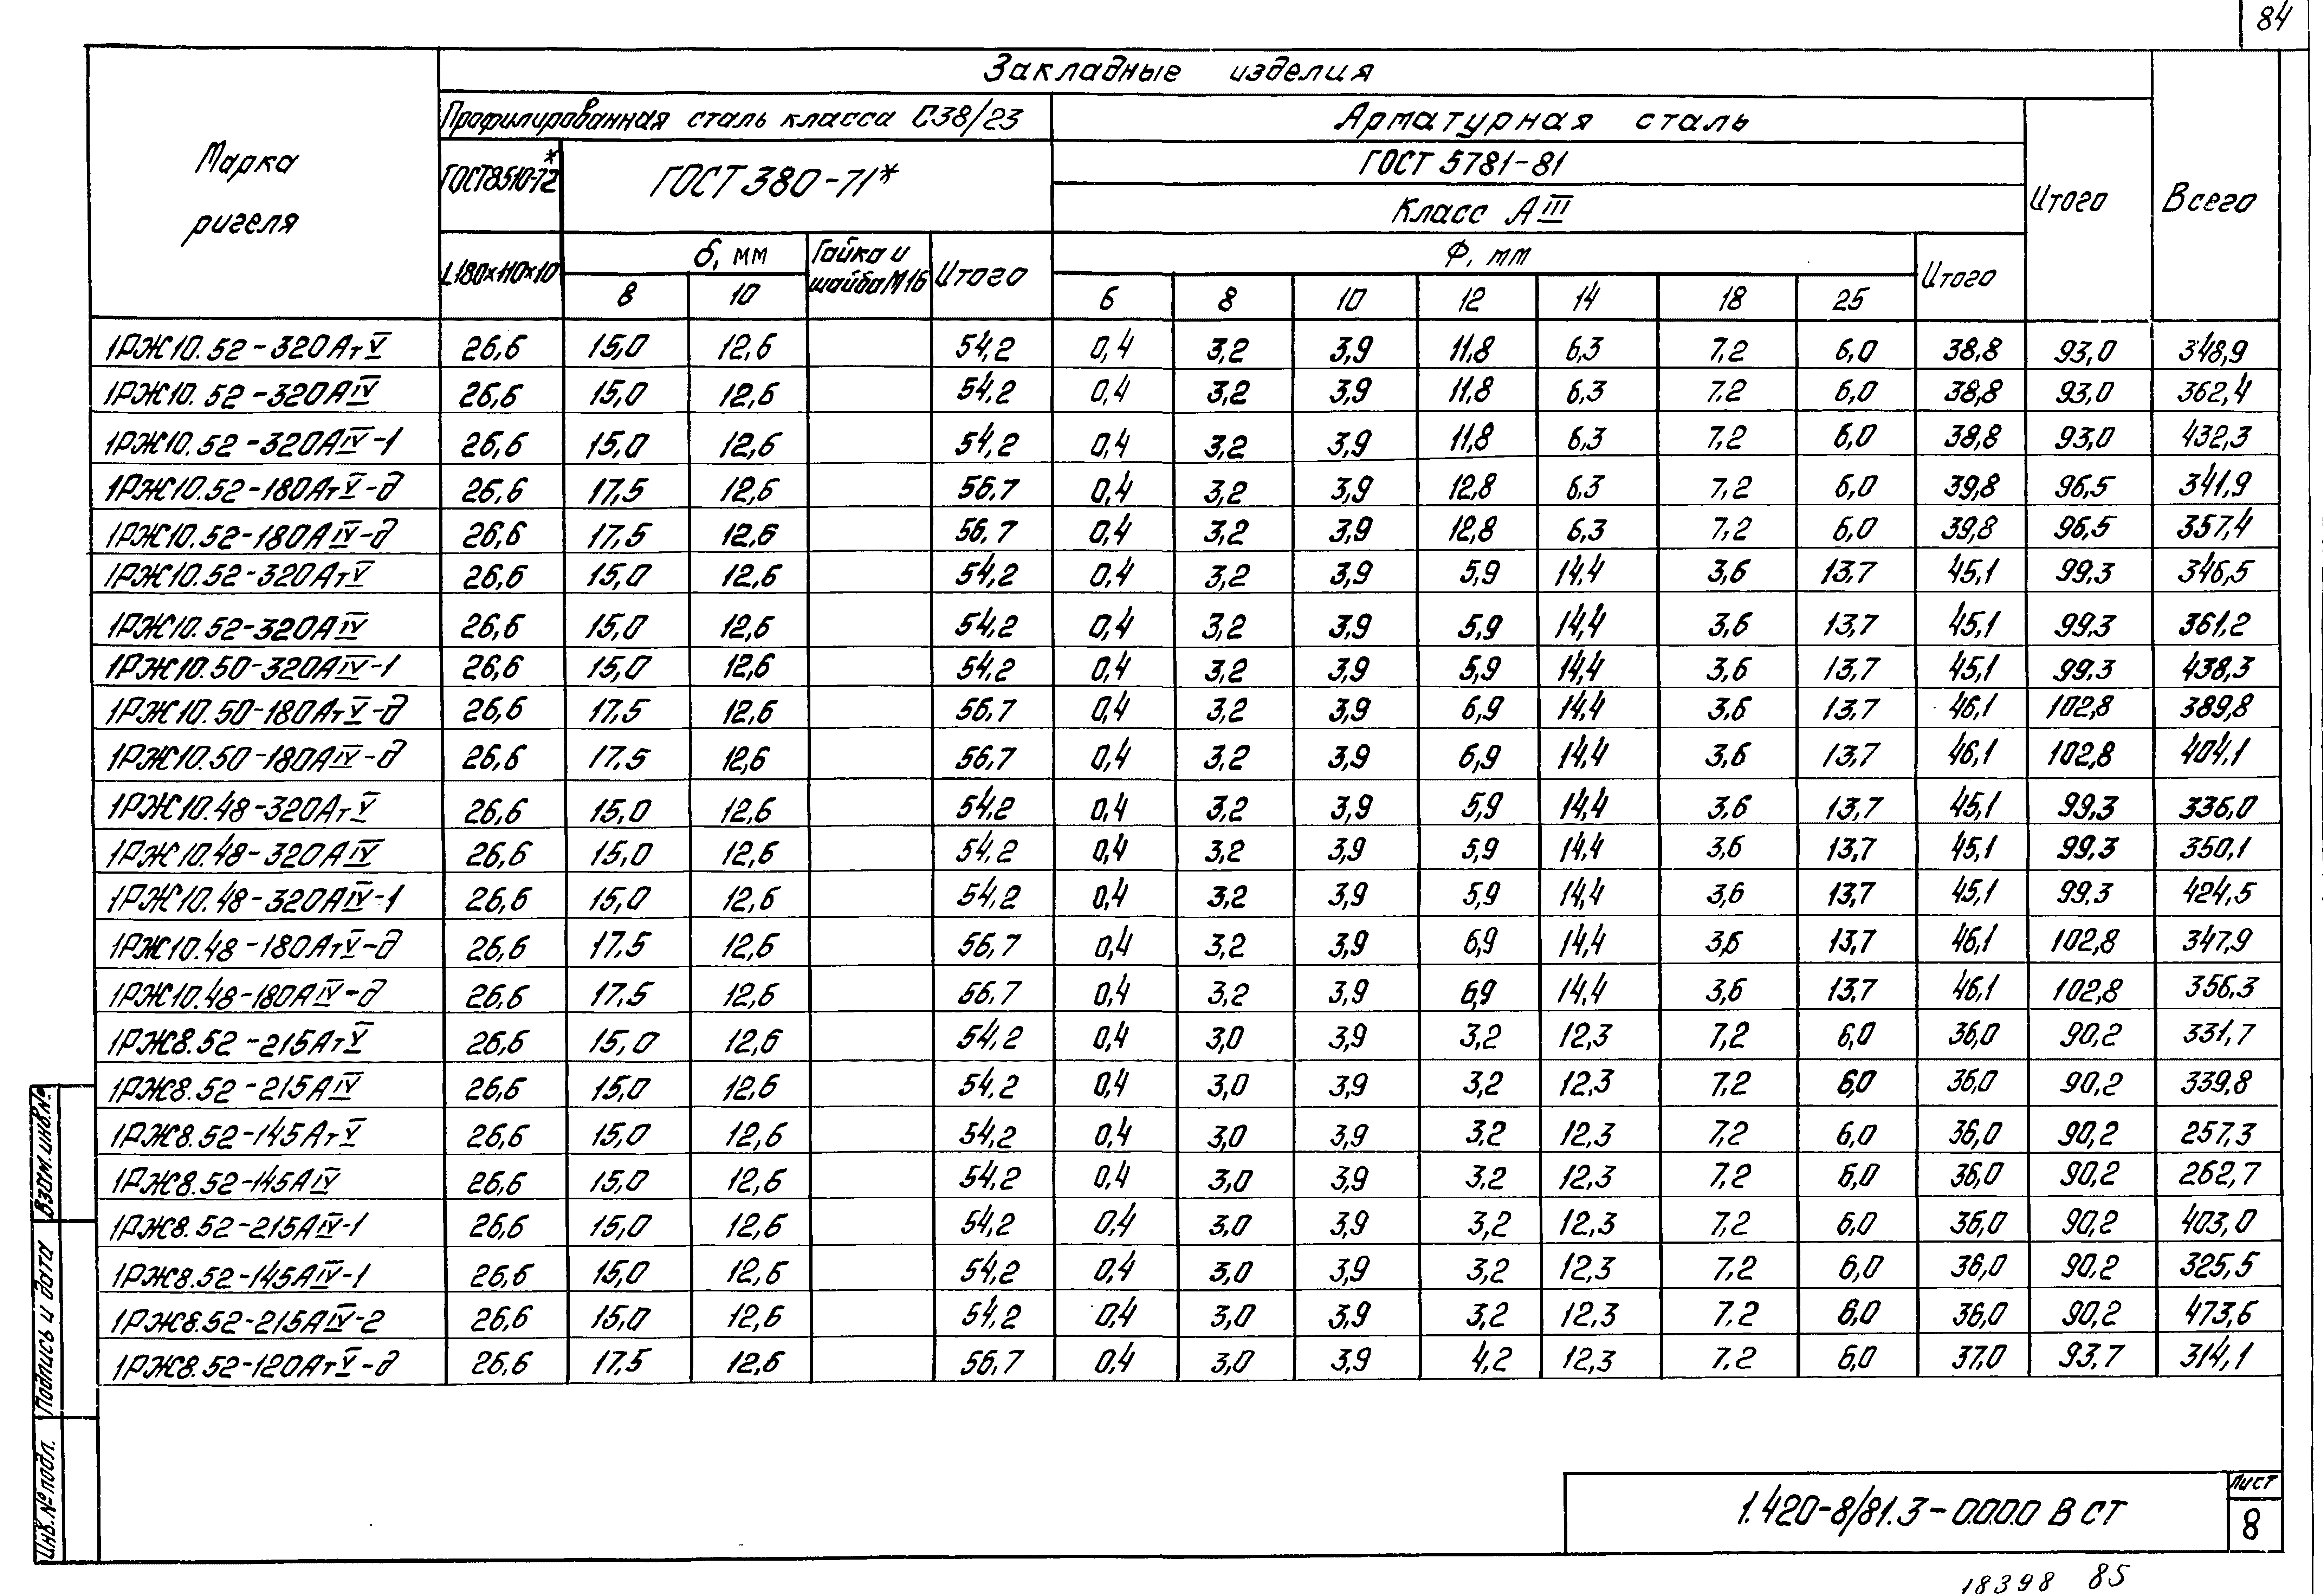 84
Закладные изделия
Марка ригеля
Профилированная сталь класса С38/23
Арматурная сталь
Итого
Всего
ГОСТ8510-72*
ГОСТ 380-71*
ГОСТ 5781-81
Класс АIII
L180×110×10
δ, мм
Гайка и шайба М16
Итого
Ф, мм
Итого
8 10 6 8 10 12 14 18 25
1РЖ10.52-320АтV 26,6 15,0 12,6 54,2 0,4 3,2 3,9 11,8 6,3 7,2 6,0 38,8 93,0 348,9
1РЖ10.52-320АIV 26,6 15,0 12,6 54,2 0,4 3,2 3,9 11,8 6,3 7,2 6,0 38,8 93,0 362,4
1РЖ10.52-320АIV-1 26,6 15,0 12,6 54,2 0,4 3,2 3,9 11,8 6,3 7,2 6,0 38,8 93,0 432,3
1РЖ10.52-180АтV-д 26,6 17,5 12,6 56,7 0,4 3,2 3,9 12,8 6,3 7,2 6,0 39,8 96,5 341,9
1РЖ10.52-180АIV-д 26,6 17,5 12,6 56,7 0,4 3,2 3,9 12,8 6,3 7,2 6,0 39,8 96,5 357,4
1РЖ10.52-320АтV 26,6 15,0 12,6 54,2 0,4 3,2 3,9 5,9 14,4 3,6 13,7 45,1 99,3 346,5
1РЖ10.52-320АIV 26,6 15,0 12,6 54,2 0,4 3,2 3,9 5,9 14,4 3,6 13,7 45,1 99,3 361,2
1РЖ10.50-320АIV-1 26,6 15,0 12,6 54,2 0,4 3,2 3,9 5,9 14,4 3,6 13,7 45,1 99,3 438,3
1РЖ10.50-180АтV-д 26,6 17,5 12,6 56,7 0,4 3,2 3,9 6,9 14,4 3,6 13,7 46,1 102,8 389,8
1РЖ10.50-180АIV-д 26,6 17,5 12,6 56,7 0,4 3,2 3,9 6,9 14,4 3,6 13,7 46,1 102,8 404,1
1РЖ10.48-320АтV 26,6 15,0 12,6 54,2 0,4 3,2 3,9 5,9 14,4 3,6 13,7 45,1 99,3 336,0
1РЖ10.48-320АIV 26,6 15,0 12,6 54,2 0,4 3,2 3,9 5,9 14,4 3,6 13,7 45,1 99,3 350,1
1РЖ10.48-320АIV-1 26,6 15,0 12,6 54,2 0,4 3,2 3,9 5,9 14,4 3,6 13,7 45,1 99,3 424,5
1РЖ10.48-180АтV-д 26,6 17,5 12,6 56,7 0,4 3,2 3,9 6,9 14,4 3,6 13,7 46,1 102,8 347,9
1РЖ10.48-180АIV-д 26,6 17,5 12,6 56,7 0,4 3,2 3,9 6,9 14,4 3,6 13,7 46,1 102,8 356,3
1РЖ8.52-215АтV 26,6 15,0 12,6 54,2 0,4 3,0 3,9 3,2 12,3 7,2 6,0 36,0 90,2 331,7
1РЖ8.52-215АIV 26,6 15,0 12,6 54,2 0,4 3,0 3,9 3,2 12,3 7,2 6,0 36,0 90,2 339,8
1РЖ8.52-145АтV 26,6 15,0 12,6 54,2 0,4 3,0 3,9 3,2 12,3 7,2 6,0 36,0 90,2 257,3
1РЖ8.52-145АIV 26,6 15,0 12,6 54,2 0,4 3,0 3,9 3,2 12,3 7,2 6,0 36,0 90,2 262,7
1РЖ8.52-215АIV-1 26,6 15,0 12,6 54,2 0,4 3,0 3,9 3,2 12,3 7,2 6,0 36,0 90,2 403,0
1РЖ8.52-145АIV-1 26,6 15,0 12,6 54,2 0,4 3,0 3,9 3,2 12,3 7,2 6,0 36,0 90,2 325,5
1РЖ8.52-215АIV-2 26,6 15,0 12,6 54,2 0,4 3,0 3,9 3,2 12,3 7,2 6,0 36,0 90,2 473,6
1РЖ8.52-120АтV-д 26,6 17,5 12,6 56,7 0,4 3,0 3,9 4,2 12,3 7,2 6,0 37,0 93,7 314,1
Взам. инв.№
Подпись и дата
Инв.№ подл.
1.420-8/81.3-0.00.0 В СТ
Лист
8
18398 85